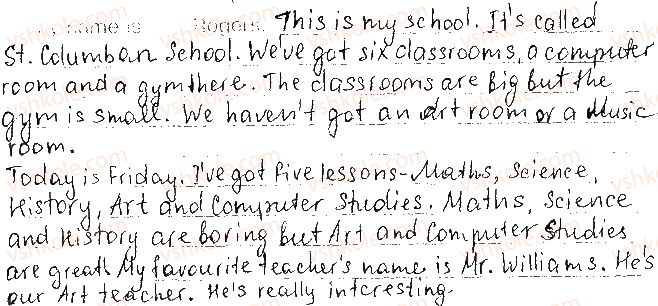 name is Rogers. This is my school. It's called
St. Columban School. We've got six classrooms, a computer
room and a gym there. The classrooms are big but the
gym is small. We haven't got an Art room or a Music
room.
Today is Friday. I've got five lessons - Maths, Science,
History, Art and Computer Studies. Maths, Science
and History are boring but Art and Computer Studies
are great. My favourite teacher's name is Mr. Williams. He's
our Art teacher. He's really interesting.